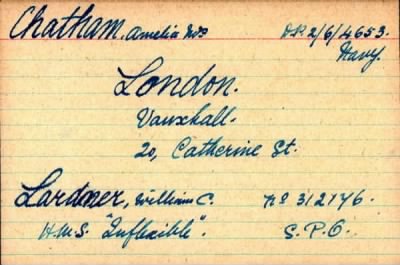 Chatham, Amelia Mrs D.P. 2/6/4653.
Navy.
London.
Vauxhall.
20, Catherine St.
Lardener, William C. No 312176.
H.M.S. "Inflexible". S.P.O.